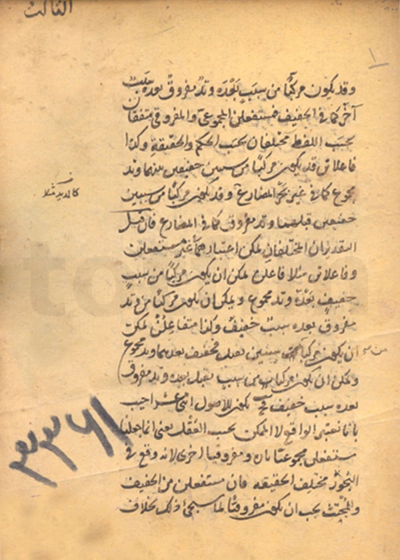 الثالث
١
وقد يكون مركبا من سبب بعده وتد مفروق بعده سبب
آخر كما في الخفيف فمستفعلن المجموعي والمفروقي متفقان
بحسب اللفظ مختلفان بحسب الحكم والحقيقة وكذا
فاعلاتن قد يكون مركبا من سببين خفيفين بينهما وتد
مجموع كما في غير بحر المضارع وقد يكون مركبا من سببين
خفيفين قبلهما وتد مفروق كما في المضارع فان قيل
التقديران المختلفان يمكن اعتبارهما في غير مستفعلن
وفاعلاتن مثلا فاعلن يمكن ان يكون مركبا من سبب
خفيف بعده وتد مجموع ويمكن ان يكون مركبا من وتد
مفروق بعده سبب خفيف وكذا متفاعلن يمكن
ان يكون مركبا من سببين ثقيل فخفيف بعدهما وتد مجموع
ويمكن ان يكون مركبا من سبب ثقيل بعده وتد مفروق
بعده سبب خفيف يكون الاصول اجيب
بانا نعتبر الواقع لا الممكن بحسب العقل يعني انا جعلنا
مستفعلن مجموعيا ومفروقيا اخرى لانه وقع في
البحور مختلف الحقيقة فان مستفعلن من الخفيف
والمجتث يجب ان يكون مفروقيا لما سيجئ ذلك بخلاف
٣٣٦١